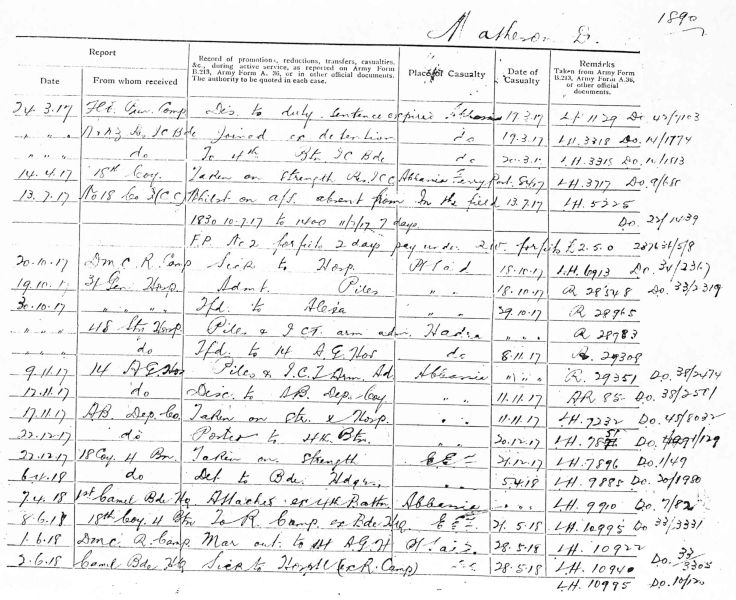 1890
Matheson D.
Report
Record of promotions, reductions, transfers, casualties, &c., during active service, as reported on Army Form B.213, Army Form A. 36, or in other official documents. The authority to be quoted in each case.
Place of Casualty
Date of Casualty
Remarks
Taken from Army Form B.213, Army Form A.36, or other official documents.
Date From whom received
24.3.17 Dis. to duty sentence expired Abbassia 17.3.17 LH 1129 Do. 42/7103
" " " Bde Joined ex detention do 19.3.17 LH. 3318 Do. 14/1774
" " " do To 4th Btn I C Bde do 20.3.17 LH. 3315 Do. 14/1813
14.4.17 18th Coy. Taken on Strength Abbassia LH. 3717 Do. 9/655
13.7.17 No 18 Co I(C C) Whilst on a/s. absent from In the field 13.7.17 LH. 5225
1830 10.7.17 to 1400 11/7/17 7 days Do. 22/1439
F.P. No 2 forfeits 2 days pay under forfeits £2.5.0
20.10.17 Dmc R. Camp Sick to Hosp. 18.10.17 LH. 6913 Do. 34/2367
19.10.17 31 Gen Hosp Admt. Piles " " 18.10.17 R 28548 Do. 33/2319
30.10.17 " " " Tfd. to Alexa " " 29.10.17 R 28965
" " " 48 Stn Hosp Piles & I.C.T. arm adm. Hadra " " " R 28983
do Tfd. to 14 A.G. Hos do 8.11.17 R. 29308
9.11.17 14 A.G. Hos Piles & I.C.T Arm. Ad. Abbassia " " " R. 29351 Do. 38/2474
12.11.17 do Disc. to A.B. Dep. Coy " " 11.11.17 AR 85 Do. 38/2581
17.11.17 A.B. Dep. Co. Taken on Str. ex Hosp. " " 11.11.17 LH. 7232 Do. 45/8032
22.12.17 do Posted to 4th Btn. " " 20.12.17 LH.
22.12.17 18 Coy. 4 Bn. Taken on Strength EEF 21.12.17 LH. 7896 Do. 1/49
6.4.18 do Det to Bde Hdqrs. " " 5.4.18 LH. 9885 Do. 20/1980
7.4.18 1st Camel Bde Hq Attached ex 4th Battn Abbassia " " " LH. 9910 Do. 7/82
8.6.18 18th Coy. 4 Btn To R. Camp. ex Bde Hq EEF 21.5.18 LH. 10995 Do. 33/3331
1.6.18 Dmc R. Camp Mar. out. to 14 A.G.H 28.5.18 LH. 10922
2.6.18 Camel Bde Hq Sick to Hospital (ex R. Camp) " " 28.5.18 LH. 10940 Do. 33/3305
LH. 10995 Do. 10/120